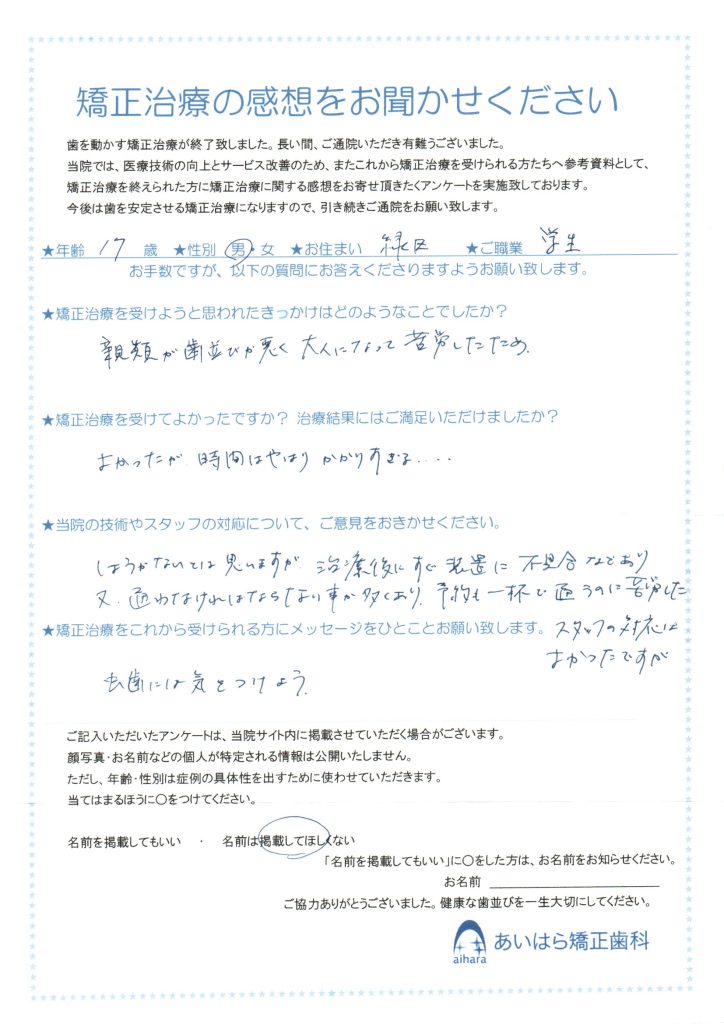 矯正治療の感想をお聞かせください
歯を動かす矯正治療が終了致しました。長い間、ご通院いただき有難うございました。
当院では、医療技術の向上とサービス改善のため、またこれから矯正治療を受けられる方たちへ参考資料として、
矯正治療を終えられた方に矯正治療に関する感想をお寄せ頂きたくアンケートを実施致しております。
今後は歯を安定させる矯正治療になりますので、引き続きご通院をお願い致します。
★年齢 17 歳 ★性別 男・女 ★お住まい 緑区 ★ご職業 学生
お手数ですが、以下の質問にお答えくださりますようお願い致します。
★矯正治療を受けようと思われたきっかけはどのようなことでしたか?
親類が歯並びが悪く大人になって苦労したため.
★矯正治療を受けてよかったですか? 治療結果にはご満足いただけましたか?
よかったが 時間はやはり かかりすぎる....
★当院の技術やスタッフの対応について、ご意見をおきかせください。
しょうがないとは思いますが 治療後にすぐ装置に不具合などあり
又 通わなければならない事が多くあり、予約も一杯で通うのに苦労した
スタッフの対応は
よかったですが
★矯正治療をこれから受けられる方にメッセージをひとことお願い致します。
虫歯には気をつけよう.
ご記入いただいたアンケートは、当院サイト内に掲載させていただく場合がございます。
顔写真・お名前などの個人が特定される情報は公開いたしません。
ただし、年齢・性別は症例の具体性を出すために使わせていただきます。
当てはまるほうに○をつけてください。
名前を掲載してもいい ・ 名前は掲載してほしくない
「名前を掲載してもいい」に○をした方は、お名前をお知らせください。
お名前
ご協力ありがとうございました。健康な歯並びを一生大切にしてください。
aihara あいはら矯正歯科